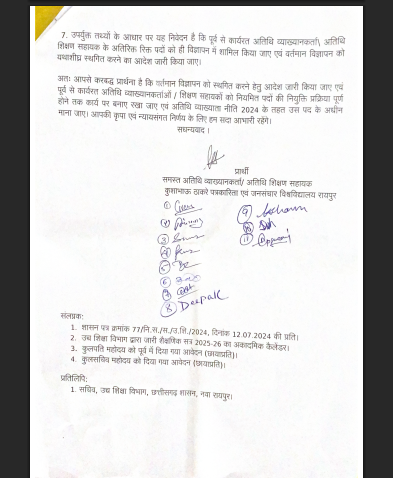 7. उपर्युक्त तथ्यों के आधार पर यह निवेदन है कि पूर्व से कार्यरत अतिथि व्याख्यानकर्ता\ अतिथि
शिक्षण सहायक के अतिरिक्त रिक्त पदों को ही विज्ञापन में शामिल किया जाए एवं वर्तमान विज्ञापन को
यथाशीघ्र स्थगित करने का आदेश जारी किया जाए।
अतः आपसे करबद्ध प्रार्थना है कि वर्तमान विज्ञापन को स्थगित करने हेतु आदेश जारी किया जाए एवं
पूर्व से कार्यरत अतिथि व्याख्यानकर्ताओं / शिक्षण सहायकों को नियमित पदों की नियुक्ति प्रक्रिया पूर्ण
होने तक कार्य पर बनाए रखा जाए एवं अतिथि व्याख्याता नीति 2024 के तहत उस पद के अधीन
माना जाए। आपकी कृपा एवं न्यायसंगत निर्णय के लिए हम सदा आभारी रहेंगे।
सधन्यवाद।
प्रार्थी
समस्त अतिथि व्याख्यानकर्ता/ अतिथि शिक्षण सहायक
कुशाभाऊ ठाकरे पत्रकारिता एवं जनसंचार विश्वविद्यालय रायपुर
1
2
3
4
5
6
7
8 Deepak
9
10
11
संलग्नक:
1. शासन पत्र क्रमांक 77/नि.स./स./उ.शि./2024, दिनांक 12.07.2024 की प्रति।
2. उच्च शिक्षा विभाग द्वारा जारी शैक्षणिक सत्र 2025-26 का अकादमिक कैलेंडर।
3. कुलपति महोदय को पूर्व में दिया गया आवेदन (छायाप्रति)।
4. कुलसचिव महोदय को दिया गया आवेदन (छायाप्रति)।
प्रतिलिपि:
1. सचिव, उच्च शिक्षा विभाग, छत्तीसगढ़ शासन, नवा रायपुर।